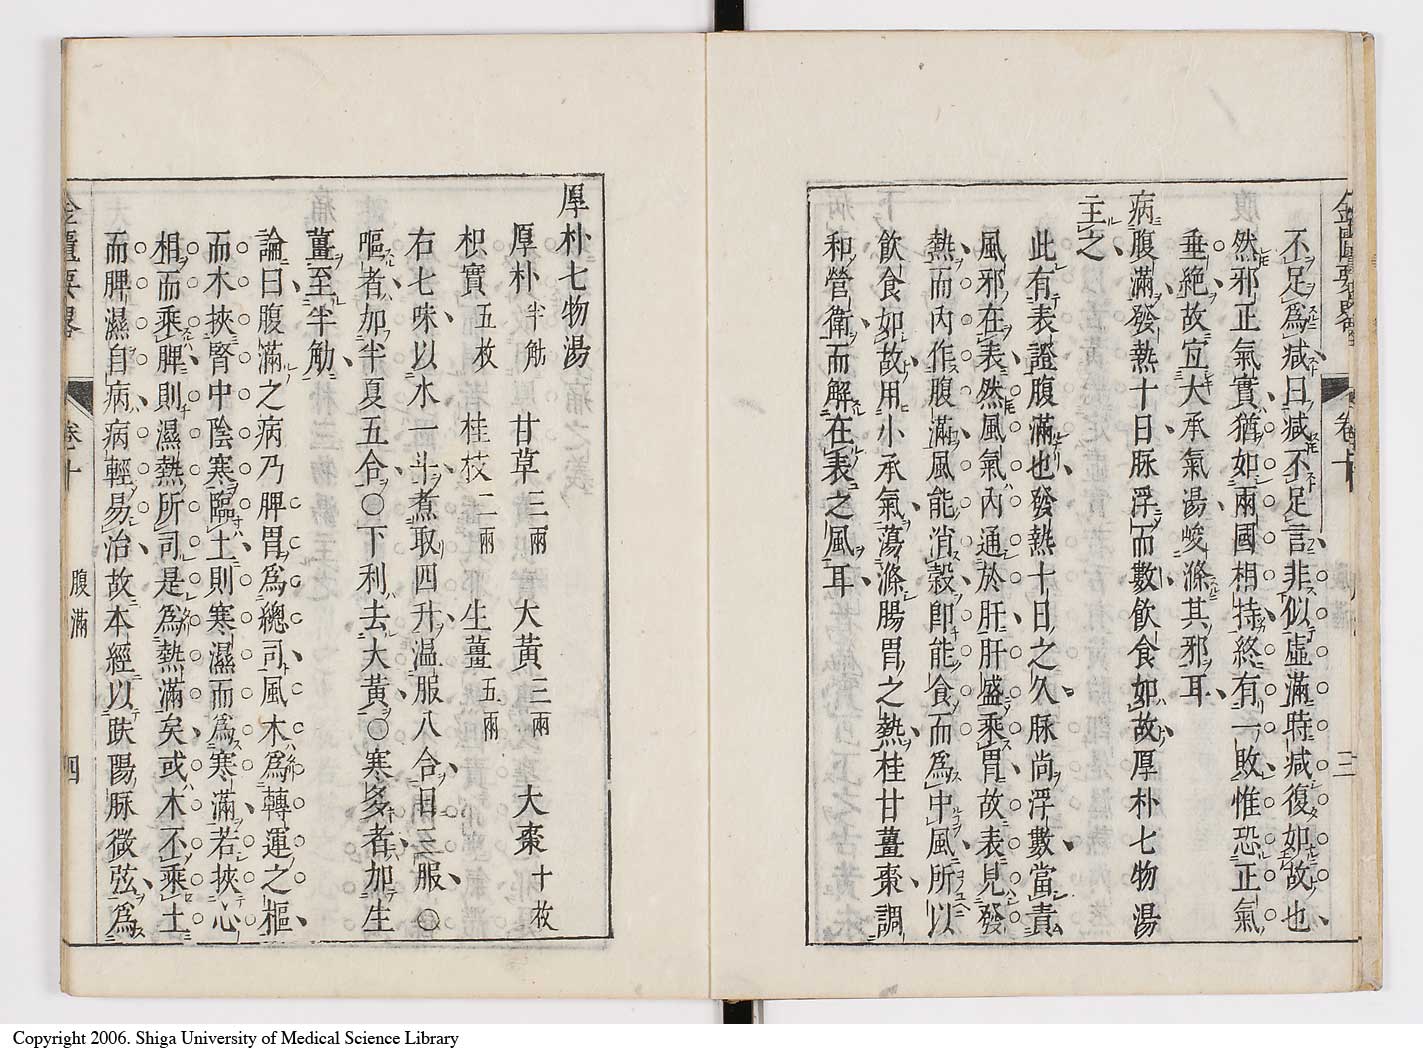 金匱要畧 卷十 三
不足爲减曰减不足言非似虛滿時减復如故也
然邪正氣實猶如兩國相持終有一敗惟恐正氣
垂絶故宜大承氣湯峻滌其邪耳
病腹滿發熱十日脉浮而數飲食如故厚朴七物湯
主之
此有表證腹滿也發熱十日之久脉尚浮數當責
風邪在表然風氣内通於肝肝盛乘胃故表見發
熱而内作腹滿風能消穀卽能食而爲中風所以
飲食如故用小承氣蕩滌腸胃之熱桂甘薑棗調
和營衛而解在表之風耳
厚朴七物湯
厚朴半觔 甘草三兩 大黃三兩 大棗十枚
枳實五枚 桂枝二兩 生薑五兩
右七味以水一斗煮取四升温服八合日三服○
嘔者加半夏五合○下利去大黃○寒多者加生
薑至半觔
論曰腹滿之病乃脾胃爲總司風木爲轉運之樞
而木挾腎中陰寒臨土則寒濕而爲寒滿若挾心
相而乘脾則濕熱所司是爲熱滿矣或木不乘土
而脾濕自病病輕易治故本經以趺陽脉微弦爲
金匱要畧 卷十 腹滿 四
Copyright 2006. Shiga University of Medical Science Library